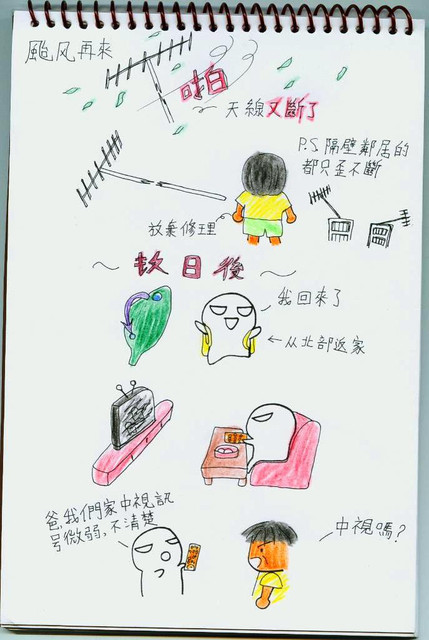 颱风再來
啪
天線又斷了
P.S.隔壁鄰居的
都只歪不斷
放棄修理
～數日後～
我回來了
←从北部返家
爸,我們家中視訊
号微弱,不清楚
中視嗎?